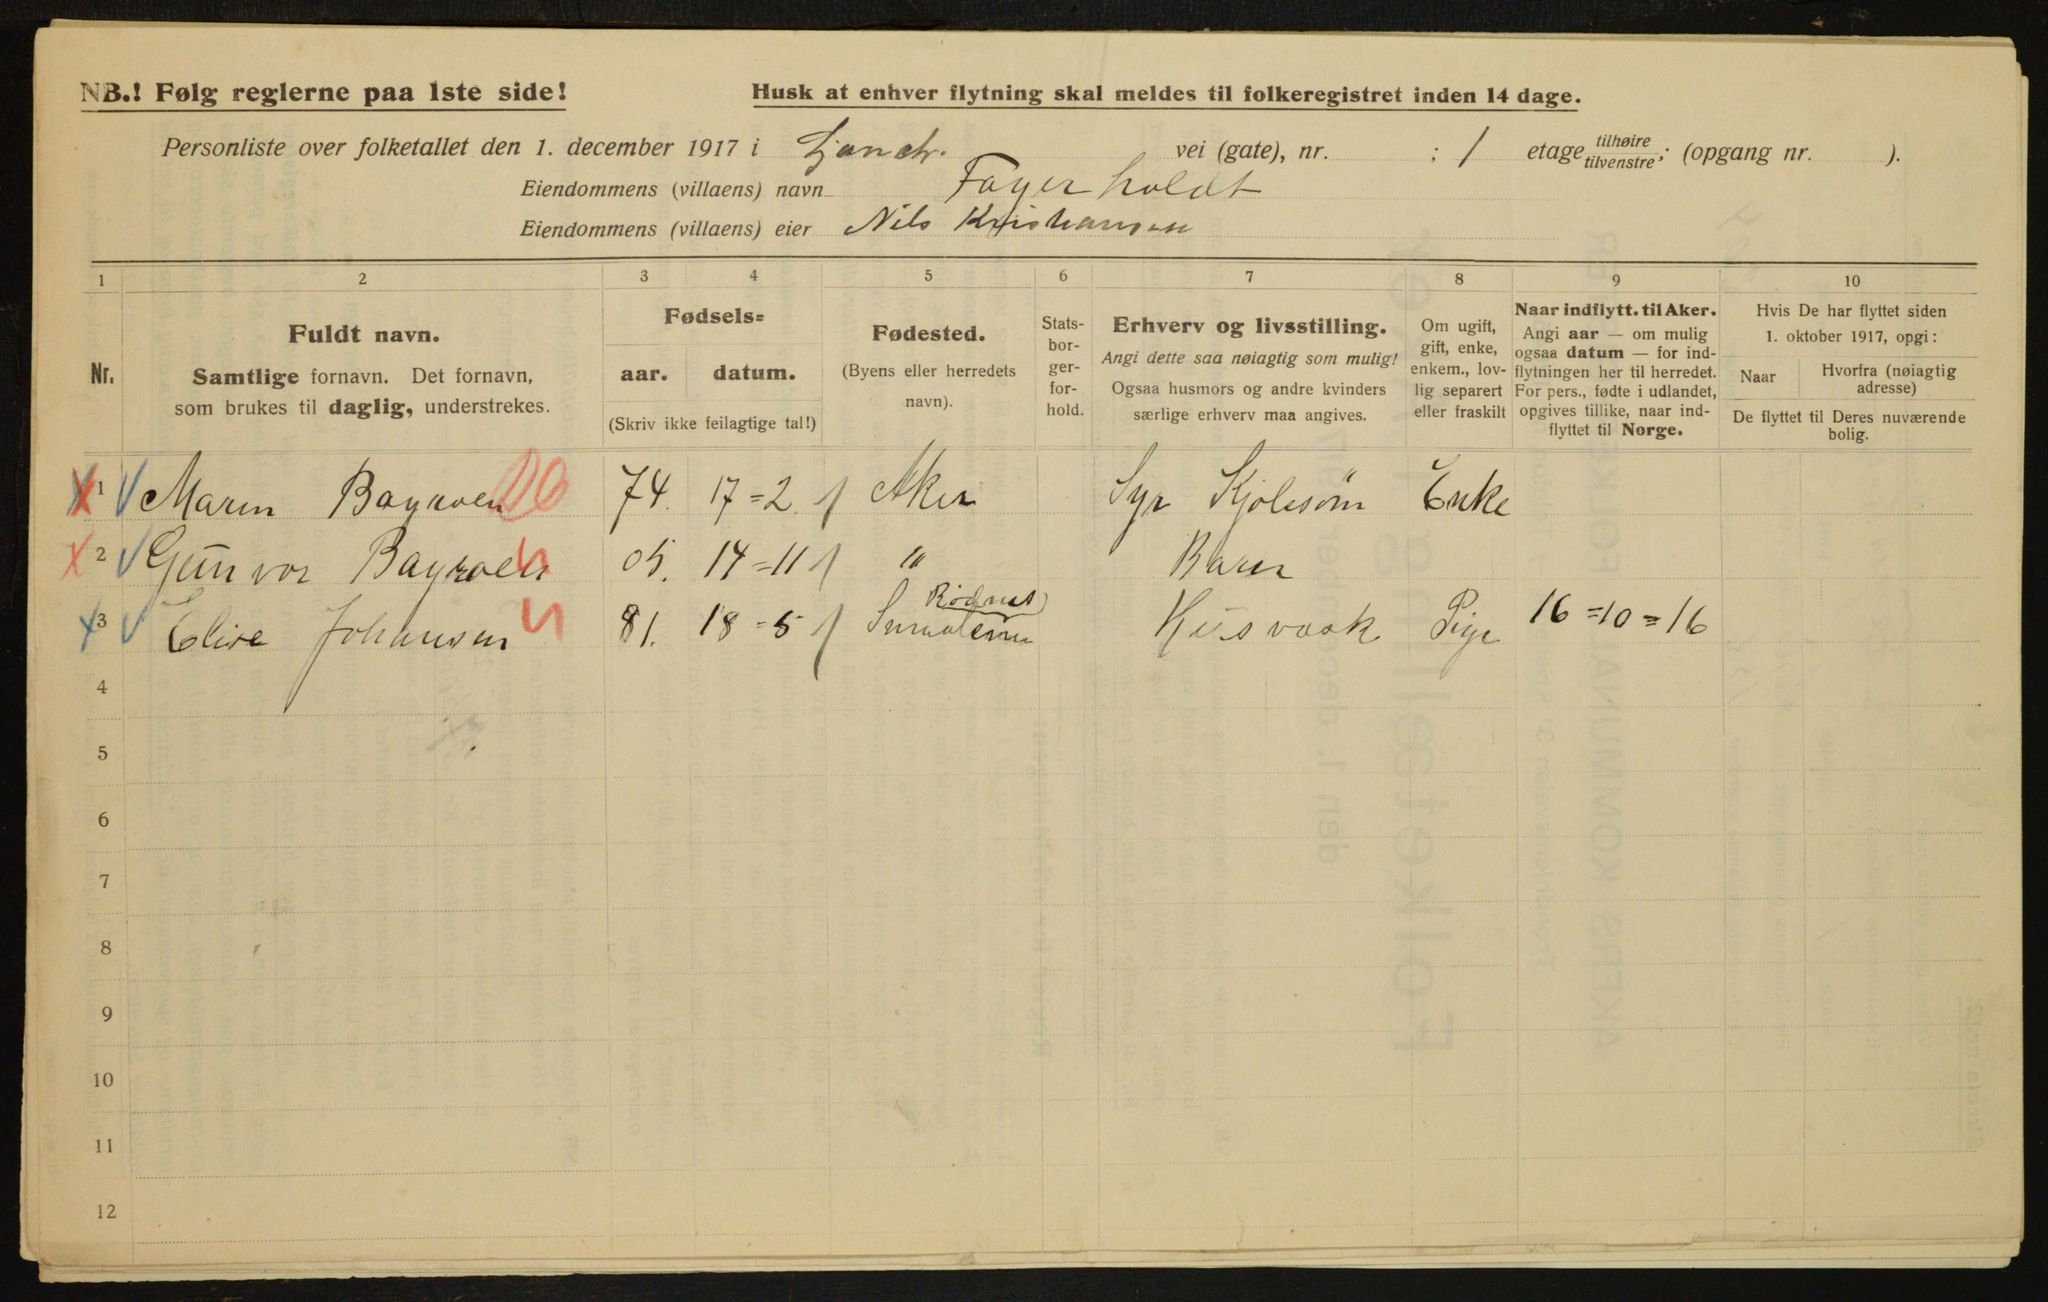 NB.! Følg reglerne paa 1ste side!
Husk at enhver flytning skal meldes til folkeregistret inden 14 dage.
Personliste over folketallet den 1. december 1917 i vei (gate), nr. ; 1 etage tilhøire tilvenstre; (opgang nr. ).
Eiendommens (villaens) navn Fagerholdt
Eiendommens (villaens) eier Nils Kristiansen
1 2 3 4 5 6 7 8 9 10
Nr.
Fuldt navn.
Samtlige fornavn. Det fornavn,
som brukes til daglig, understrekes.
Fødsels=
aar. datum.
(Skriv ikke feilagtige tal!)
Fødested.
(Byens eller herredets
navn).
Stats-
bor-
ger-
for-
hold.
Erhverv og livsstilling.
Angi dette saa nøiagtig som mulig!
Ogsaa husmors og andre kvinders
særlige erhverv maa angives.
Om ugift,
gift, enke,
enkem., lov-
lig separert
eller fraskilt
Naar indflytt. til Aker.
Angi aar — om mulig
ogsaa datum — for ind-
flytningen her til herredet.
For pers., fødte i udlandet,
opgives tillike, naar ind-
flyttet til Norge.
Hvis De har flyttet siden
1. oktober 1917, opgi:
Naar
Hvorfra (nøiagtig
adresse)
De flyttet til Deres nuværende
bolig.
1 Maren 74. 17=2 Aker Syr Kjolesöm Enke
2 Gunvor 05. 14=11 " Barn
3 Elise Johansen 81. 18=5 Husvask Pige 16=10=16
4
5
6
7
8
9
10
11
12